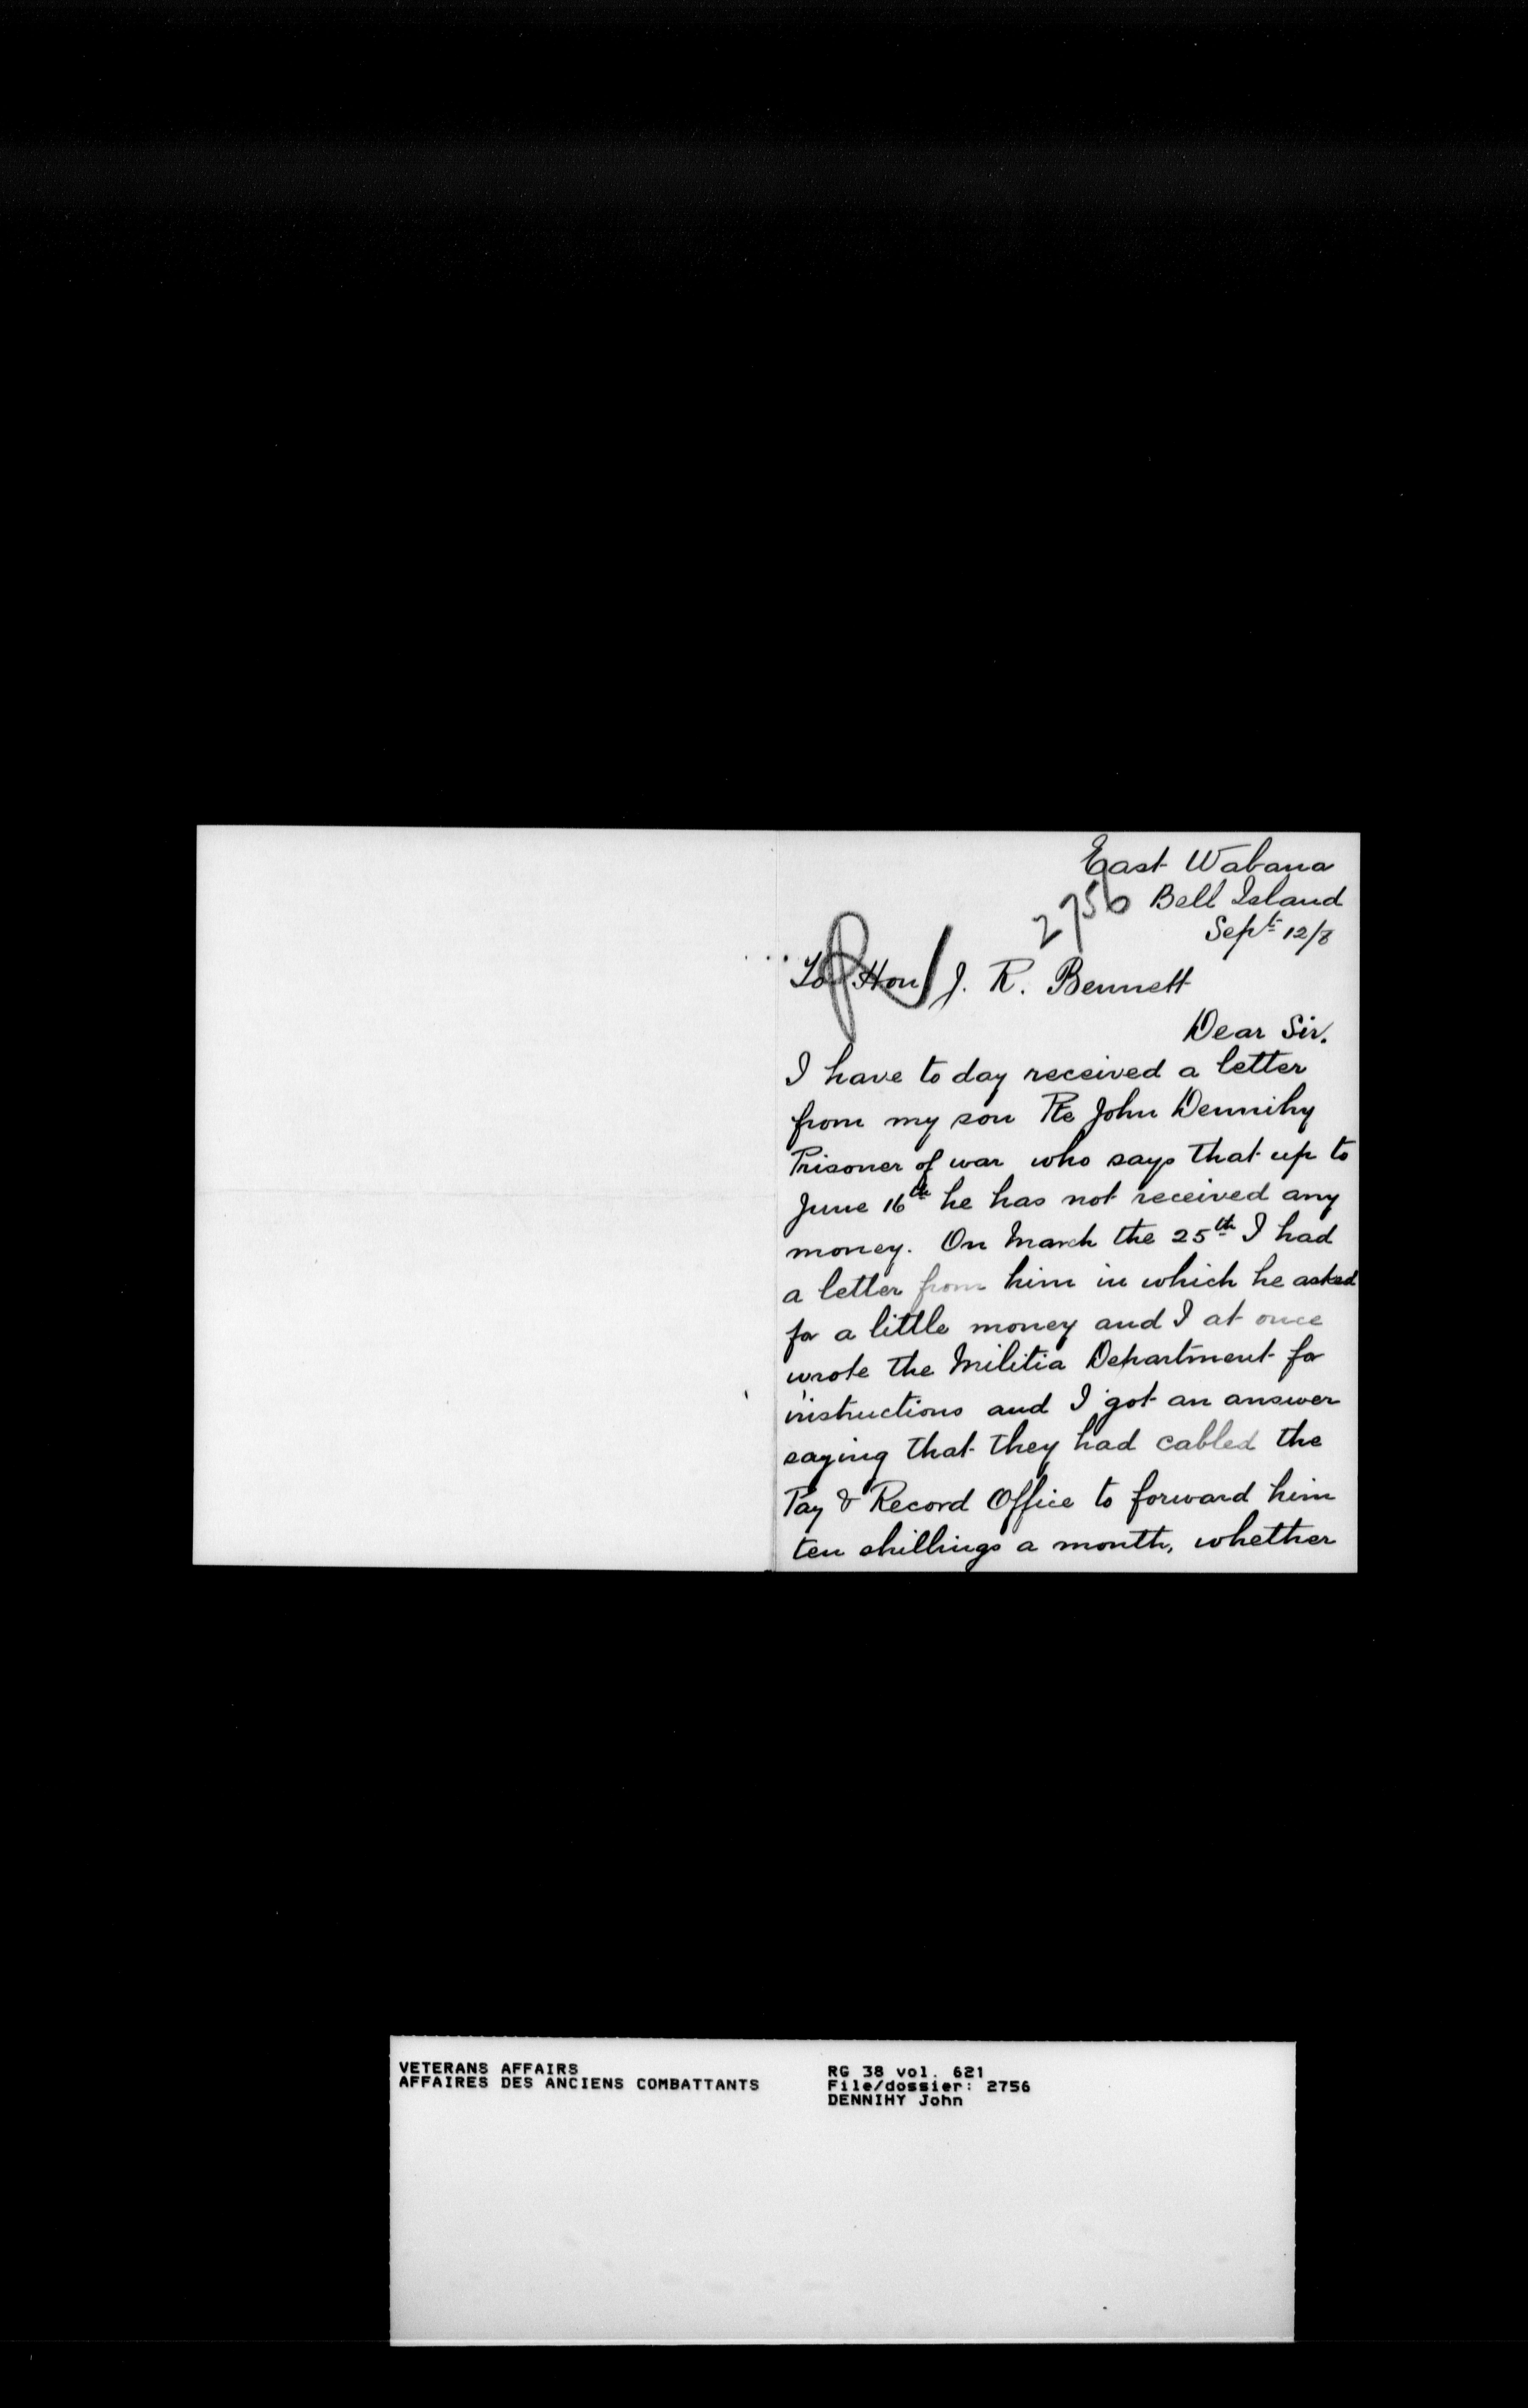 East Wabana
2756 Bell Island
Sept 12/8
To Hon J. R. Bennett
Dear Sir.
I have to day received a letter
from my son Pte John Dennihy
Prisoner of war who says that up to
June 16th he has not received any
money. On March the 25th I had
a letter from him in which he asked
for a little money and I at once
wrote the Militia Department for
instructions and I got an answer
saying that they had cabled the
Pay & Record Office to forward him
ten shillings a month, whether
VETERANS AFFAIRS
AFFAIRES DES ANCIENS COMBATTANTS
RG 38 vol. 621
File/dossier: 2756
DENNIHY John